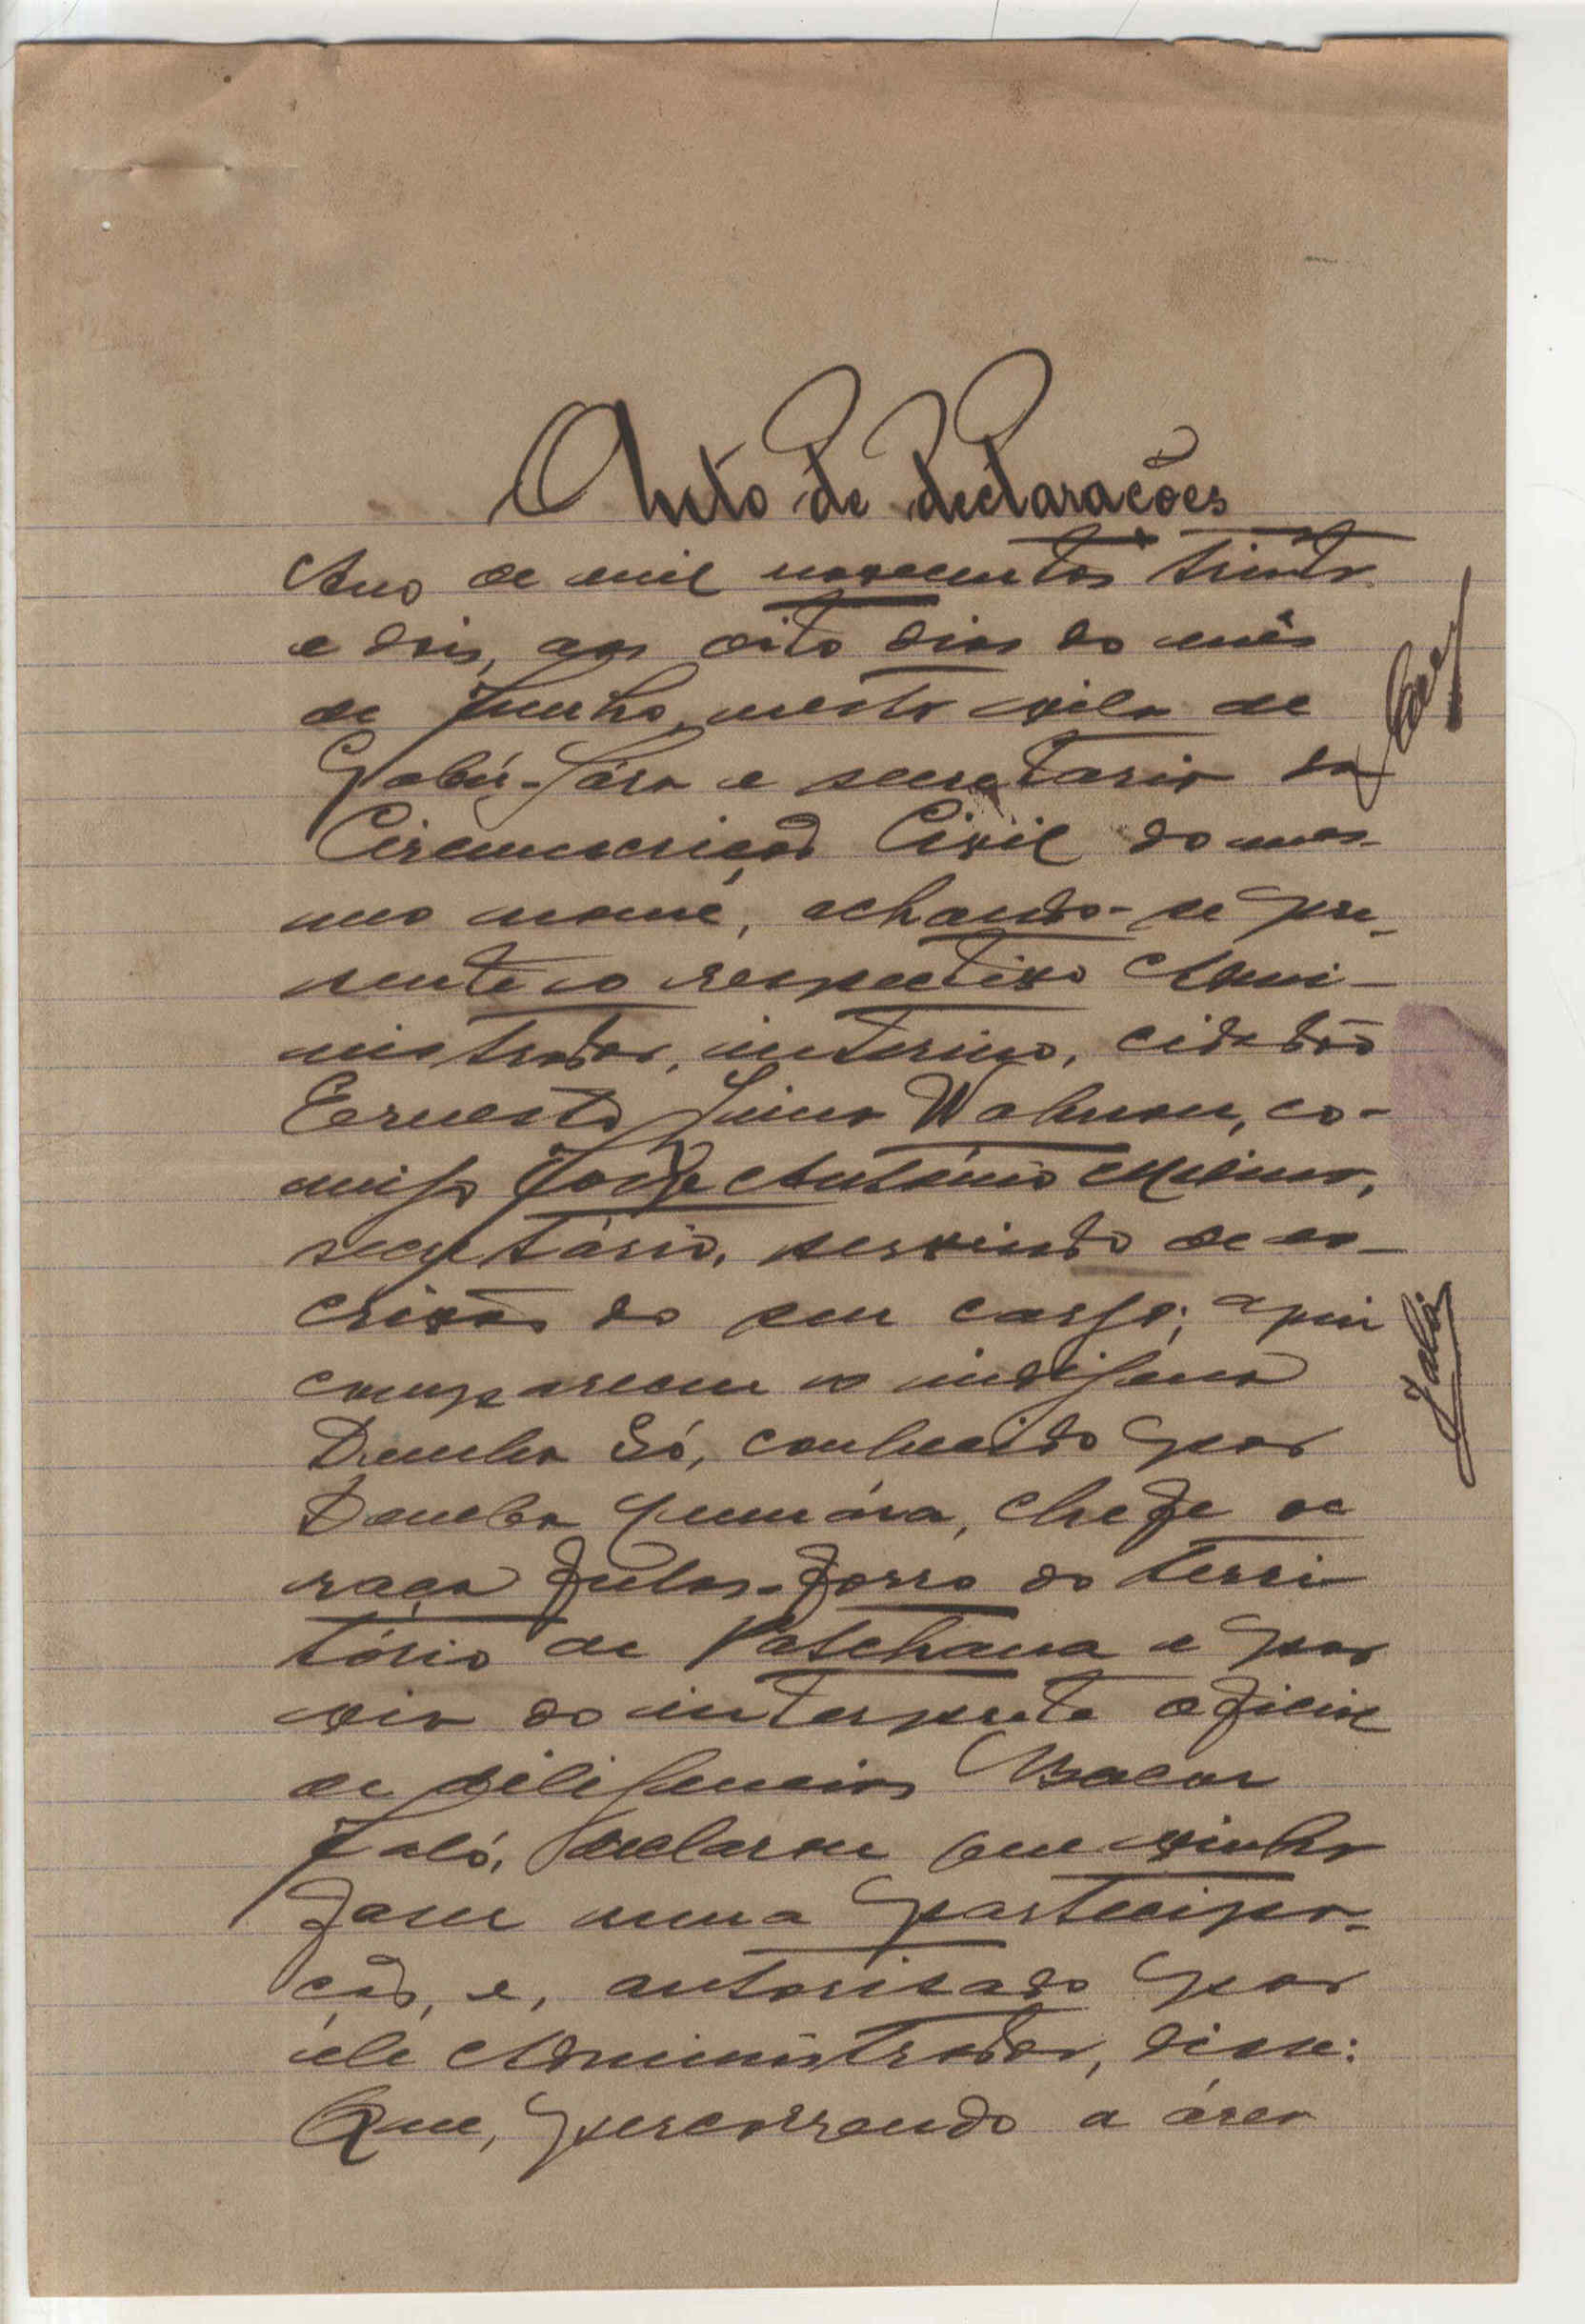 Auto de declarações
Ano de mil novecentos trinta
e dois, aos oito dias do mês
de Junho, nesta vila de
Gabú-Sára e secretaria da
Circunscrição Civil do mes-
mo nome, achando-se pre-
sente o respectivo Admi-
nistrador, interino, cidadão
Ernesto Lima Wahnon, co-
migo Jorge António
secretário, servindo de es-
crivão do seu cargo; aqui
compareceu o indigena
Demba Só, conhecido por
Demba Qumára, chefe de
raça fulas-forro do terri
tório de Patchana e por
via do interprete oficial
de diligencias Bacar
Jaló, declarou que vinha
fazer numa participa-
ção, e, autorisado por
ele Administrador, disse:
Que, percorrendo a área
Jaló